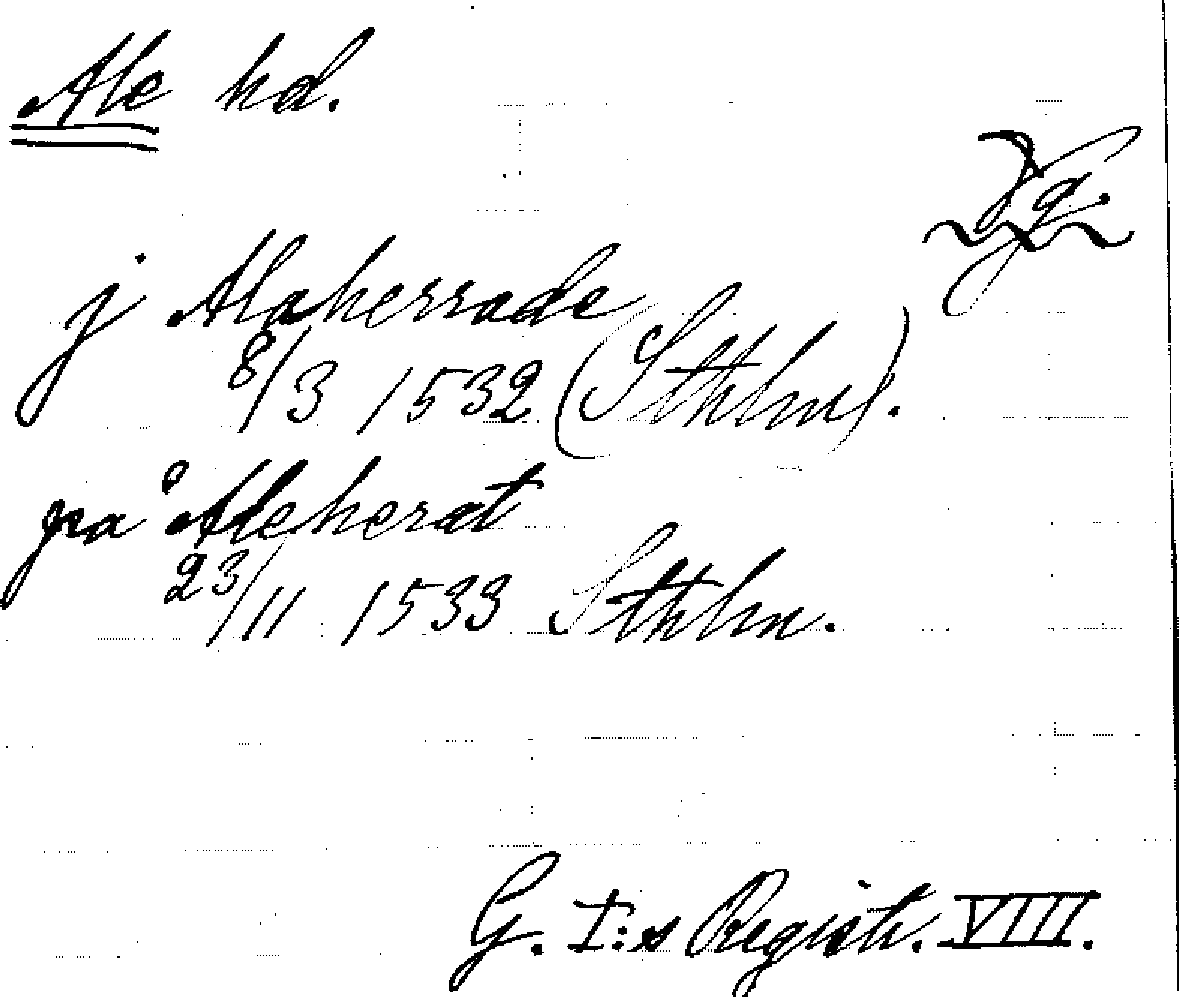 Ale hd.
Vg.
j Alaherrade
8/3 1532 (Sthlm).
på Aleherat
23/11 1533 Sthlm.
G. I:s Registr. VIII.